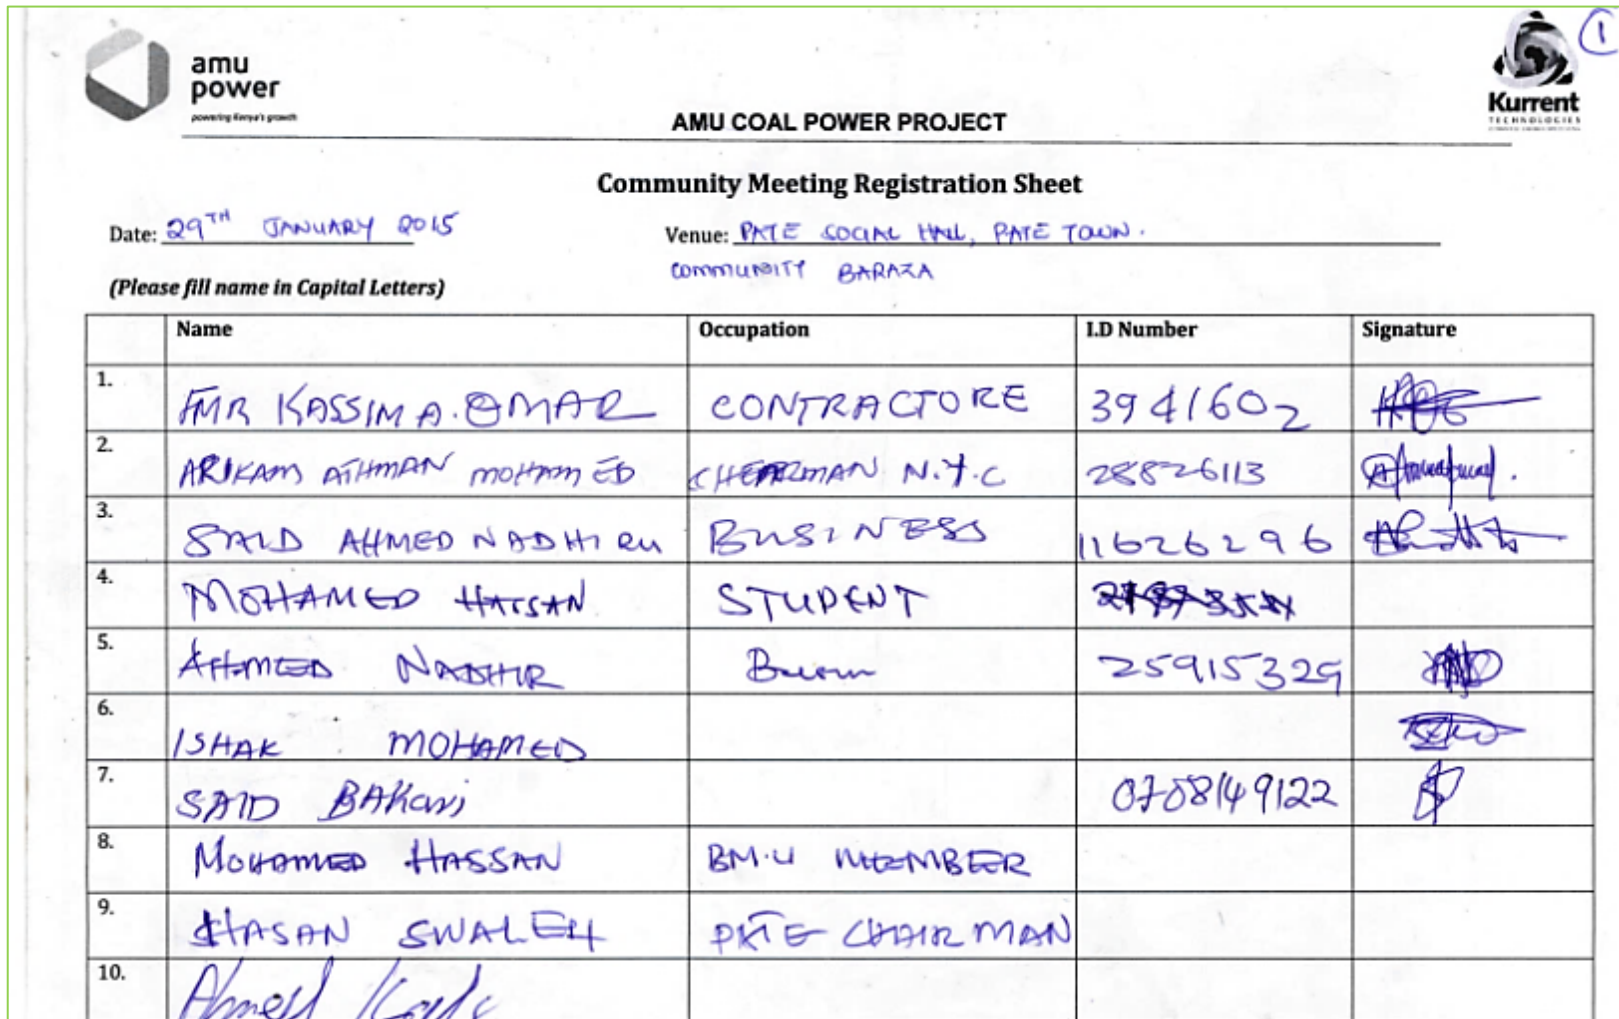 1
amu
power
powering Kenya's growth
Kurrent
TECHNOLOGIES
AMU COAL POWER PROJECT
Community Meeting Registration Sheet
Date: 29TH JANUARY 2015 Venue: PATE SOCIAL HALL, PATE TOWN.
COMMUNITY BARAZA
(Please fill name in Capital Letters)
Name Occupation I.D Number Signature
1. FMR KASSIM A. OMAR CONTRACTORE 3941602
2. ARIKAM ATHMAN MOHAMED CHEARMAN N.Y.C 28826113
3. SAID AHMED NADHIRU BUSINESS 11626296
4. MOHAMED HASSAN STUDENT
5. AHMED NADHIR 25915329
6. ISHAK MOHAMED
7. SAID BAKARI 0708149122
8. MOHAMED HASSAN BM.U MEMBER
9. HASAN SWALEH PATE CHAIRMAN
10. Ahmed